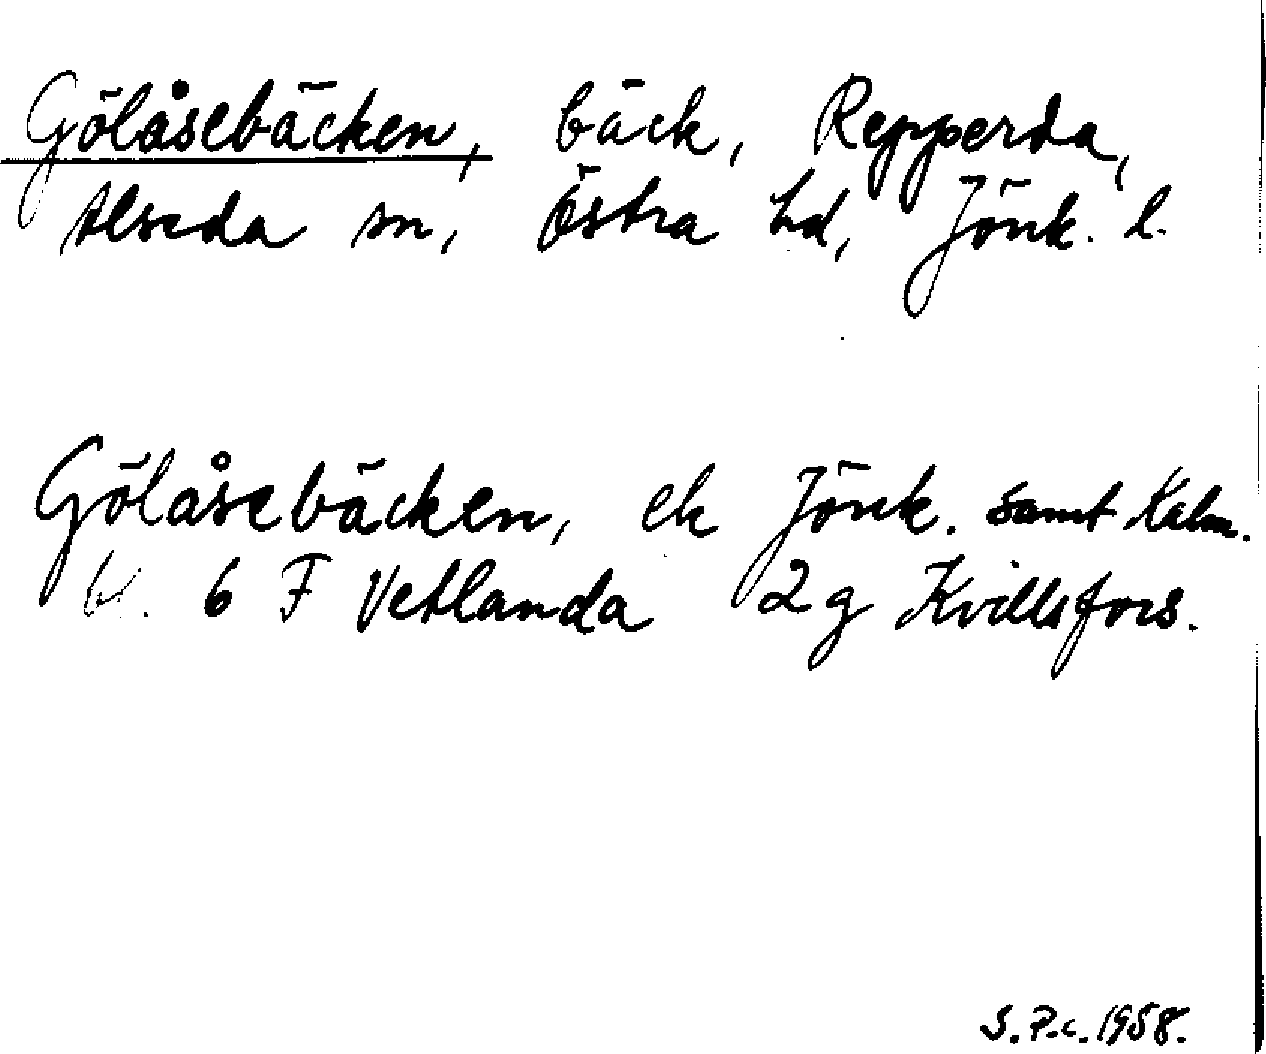 Gölåsebäcken, bäck, Repperda,
Alseda sn, Östra hd, Jönk. l.
Gölåsebäcken, ek Jönk. samt Kalm.
bl. 6 F Vetlanda 2 g Kvillsfors.
S.P.c. 1958.